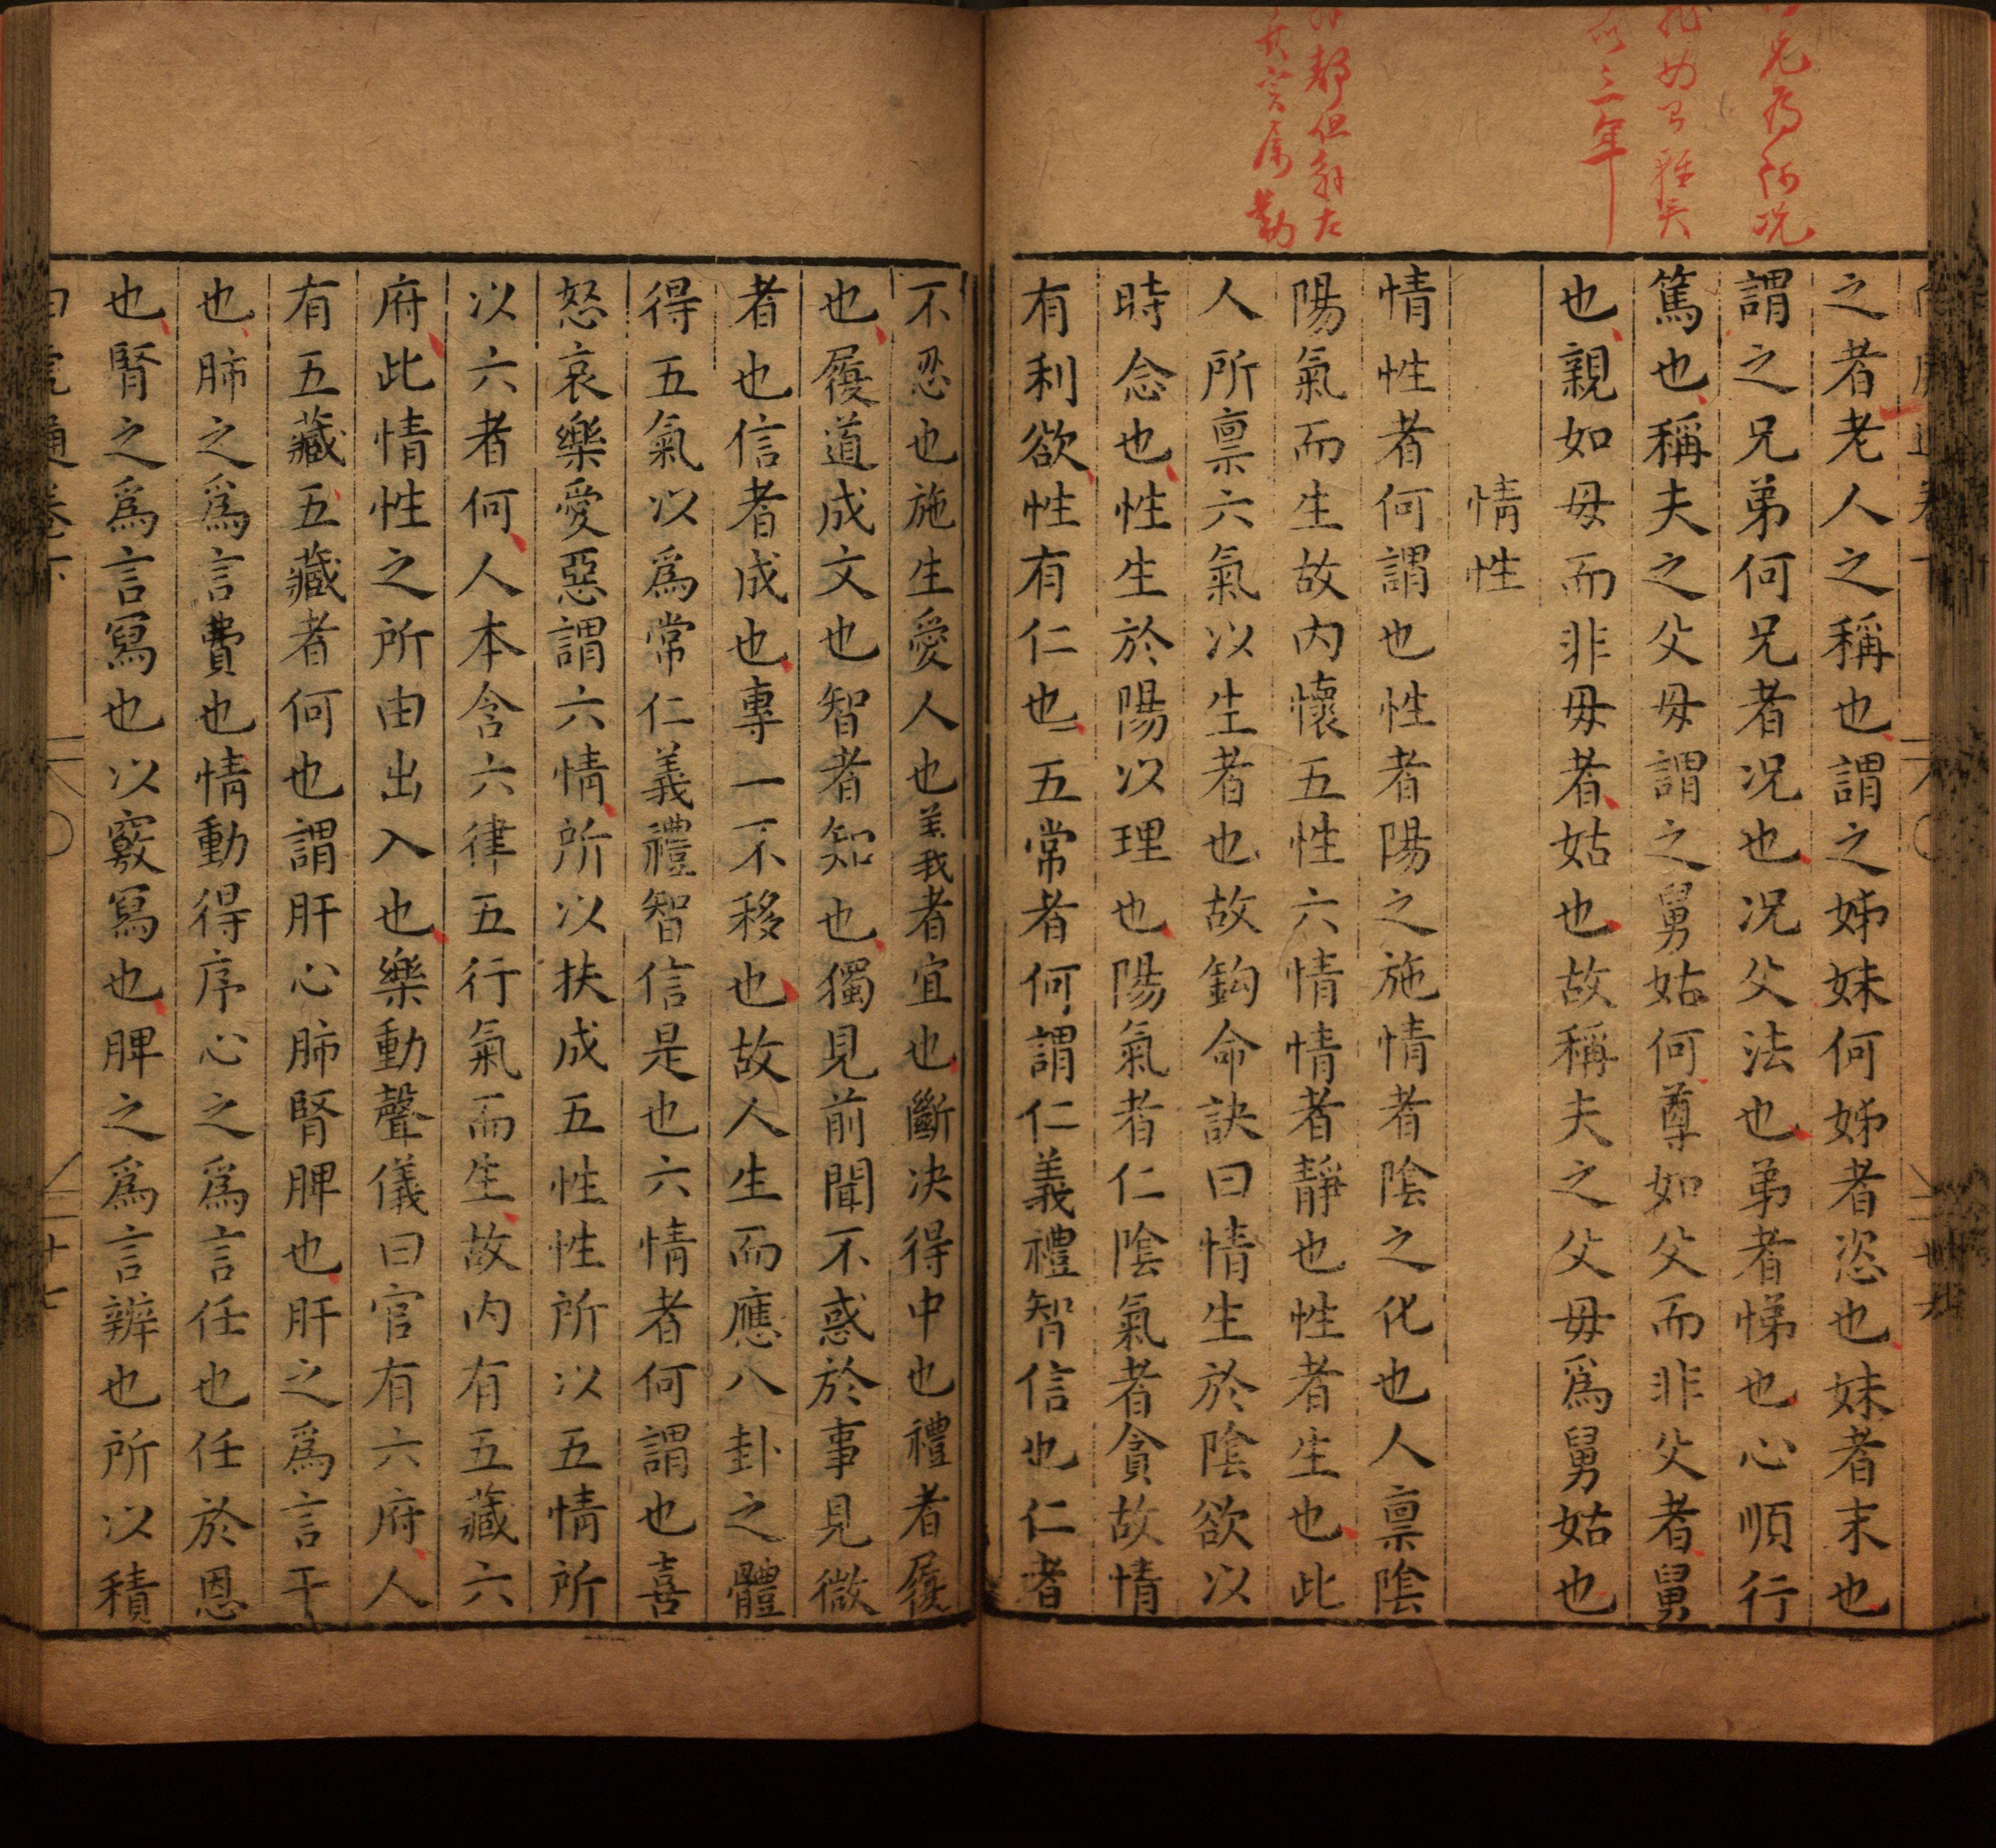 之者老人之稱也謂之姊妹何姊者恣也妹者末也
謂之兄弟何兄者况也况父法也弟者悌也心順行
篤也稱夫之父母謂之舅姑何尊如父而非父者舅
也親如母而非母者姑也故稱夫之父母爲舅姑也
情性
情性者何謂也性者陽之施情者陰之化也人稟陰
陽氣而生故内懷五性六情情者靜也性者生也此
人所稟六氣以生者也故鈎命訣曰情生於陰欲以
時念也性生於陽以理也陽氣者仁陰氣者貪故情
有利欲性有仁也五常者何謂仁義禮智信也仁者
不忍也施生愛人也義者宜也斷决得中也禮者履
也履道成文也智者知也獨見前聞不惑於事見微
者也信者成也專一不移也故人生而應八卦之體
得五氣以爲常仁義禮智信是也六情者何謂也喜
怒哀樂愛惡謂六情所以扶成五性性所以五情所
以六者何人本含六律五行氣而生故内有五藏六
府此情性之所由出入也樂動聲儀曰官有六府人
有五藏五藏者何也謂肝心肺腎脾也肝之爲言干
也肺之爲言費也情動得序心之爲言任也任於恩
也腎之爲言寫也以竅寫也脾之爲言辨也所以積